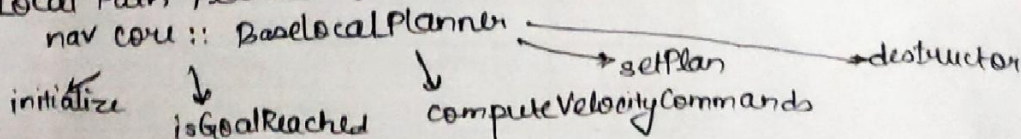 nav core :: BaseLocalPlanner
setPlan
destructor
initialize
isGoalReached
computeVelocityCommands